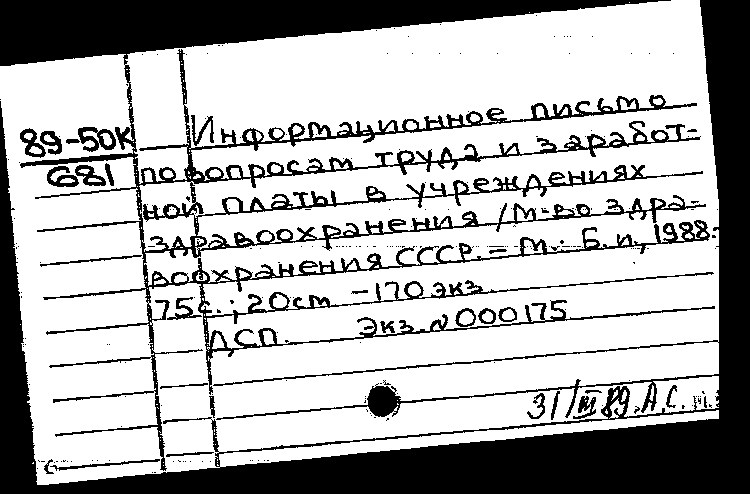 89-50К Информационное письмо
681 по вопросам труда и заработ-
ной платы в учреждениях
здравоохранения /М-во здра-
воохранения СССР. - М.: Б.и., 1988.-
75с.; 20см -170 экз.
ДСП. Экз. №000175
31/III 89. А.С.